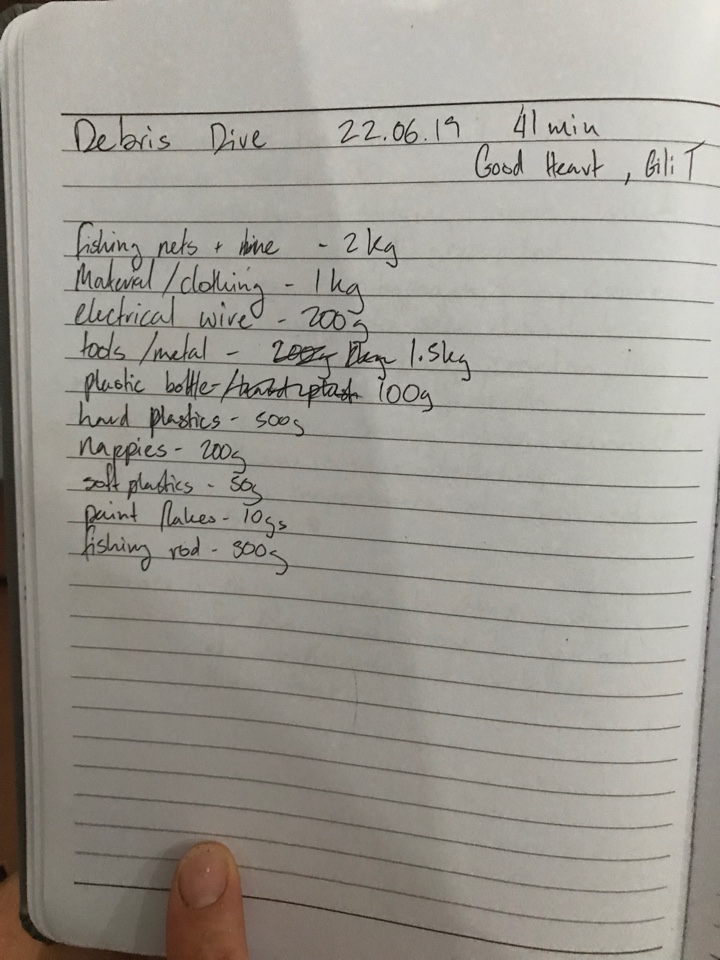 Debris Dive 22.06.19 41 min
Good Heart, Gili T
fishing nets + line - 2kg
Material/clothing - 1kg
electrical wire - 200g
tools/metal - 200g 1.5kg
plastic bottle - 100g
hard plastics - 500g
Nappies - 200g
soft plastics - 50g
paint flakes - 10gs
fishing rod - 300g